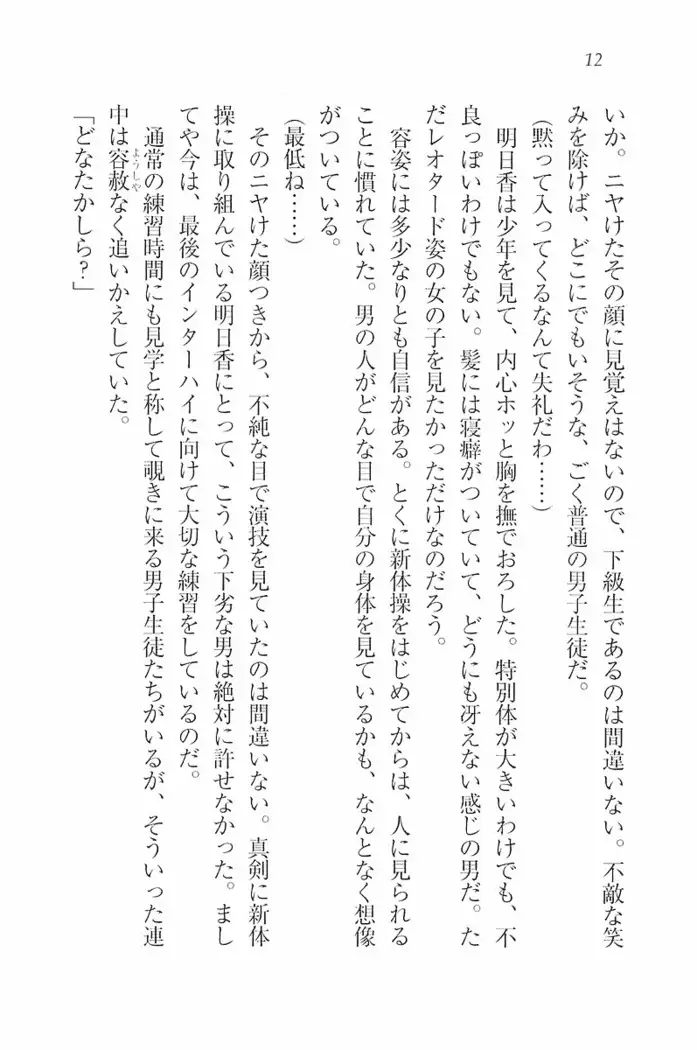 12
いか。ニヤけたその顔に見覚えはないので、下級生であるのは間違いない。不敵な笑
みを除けば、どこにでもいそうな、ごく普通の男子生徒だ。
(黙って入ってくるなんて失礼だわ……)
明日香は少年を見て、内心ホッと胸を撫でおろした。特別体が大きいわけでも、不
良っぽいわけでもない。髪には寝癖がついていて、どうにも冴えない感じの男だ。た
だレオタード姿の女の子を見たかっただけなのだろう。
容姿には多少なりとも自信がある。とくに新体操をはじめてからは、人に見られる
ことに慣れていた。男の人がどんな目で自分の身体を見ているかも、なんとなく想像
がついている。
(最低ね……)
そのニヤけた顔つきから、不純な目で演技を見ていたのは間違いない。真剣に新体
操に取り組んでいる明日香にとって、こういう下劣な男は絶対に許せなかった。まし
てや今は、最後のインターハイに向けて大切な練習をしているのだ。
通常の練習時間にも見学と称して覗きに来る男子生徒たちがいるが、そういった連
中は容赦ようしゃなく追いかえしていた。
「どなたかしら?」